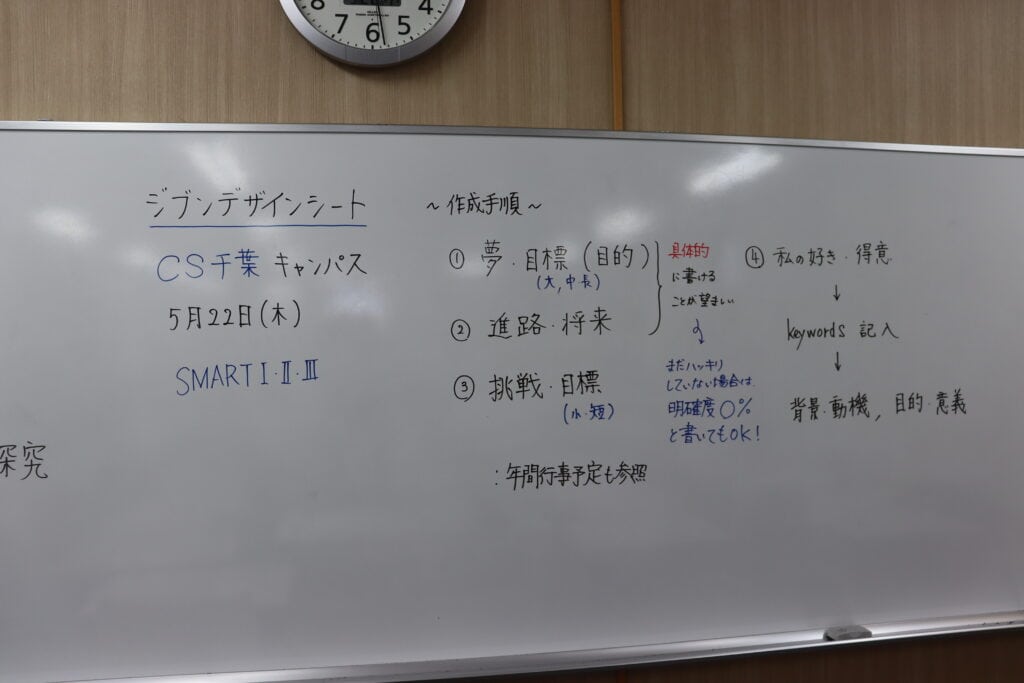 8 7 6 5 4
ジブンデザインシート
CS千葉 キャンパス
5月22日(木)
SMART Ⅰ・Ⅱ・Ⅲ
探究
~ 作成手順 ~
① 夢・目標 (目的)
(大, 中長)
② 進路・将来
具体的
に書ける
ことが望ましい
まだハッキリ
していない場合は、
明確度〇%
と書いてもOK!
③ 挑戦・目標
(小・短)
: 年間行事予定も参照
④ 私の好き・得意
↓
keywords 記入
↓
背景・動機, 目的・意義